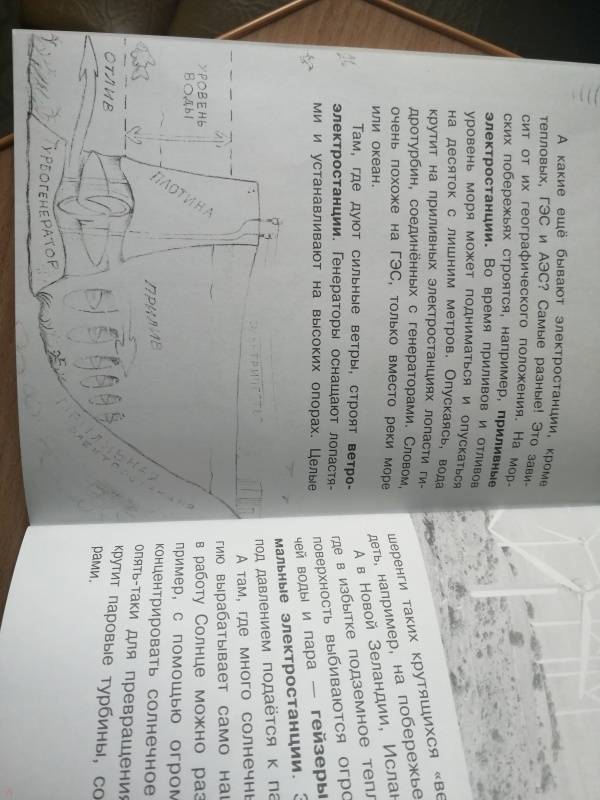 А какие ещё бывают электростанции, кроме
тепловых, ГЭС и АЭС? Самые разные! Это зави-
сит от их географического положения. На мор-
ских побережьях строятся, например, приливные
электростанции. Во время приливов и отливов
уровень моря может подниматься и опускаться
на десяток с лишним метров. Опускаясь, вода
крутит на приливных электростанциях лопасти ги-
дротурбин, соединённых с генераторами. Словом,
очень похоже на ГЭС, только вместо реки море
или океан.
Там, где дуют сильные ветры, строят ветро-
электростанции. Генераторы оснащают лопастя-
ми и устанавливают на высоких опорах. Целые
УРОВЕНЬ
ВОДЫ
ОТЛИВ
ПЛОТИНА
ПРИЛИВ
ТУРБОГЕНЕРАТОР
шеренги таких крутящихся «ве
деть, например, на побережье
А в Новой Зеландии, Ислан
где в избытке подземное тепл
поверхность выбиваются огро
чей воды и пара — гейзеры
мальные электростанции.
под давлением подаётся к па
А там, где много солнечны
гию вырабатывает само на
в работу Солнце можно раз
пример, с помощью огром
концентрировать солнечное
опять-таки для превращения
крутит паровые турбины, со
рами.